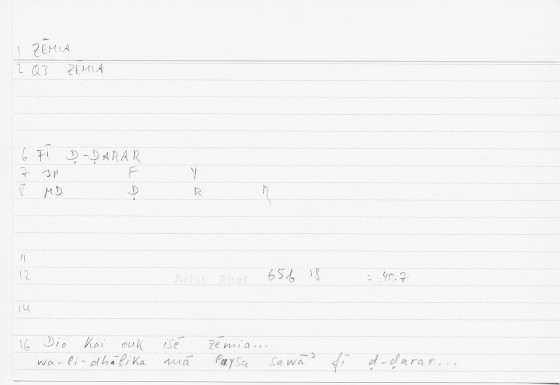 1 ZĒMIA
2 Q3 ZĒMIA
6 FĪ Ḍ-ḌARAR
7 SP F Y
8 MD Ḍ R R
11
12 Arist Rhet 656 18 = 40.7
14
16 Dio kai ouk isē zēmia...
wa-li-dhālika mā laysa sawāʾ fī ḍ-ḍarar...